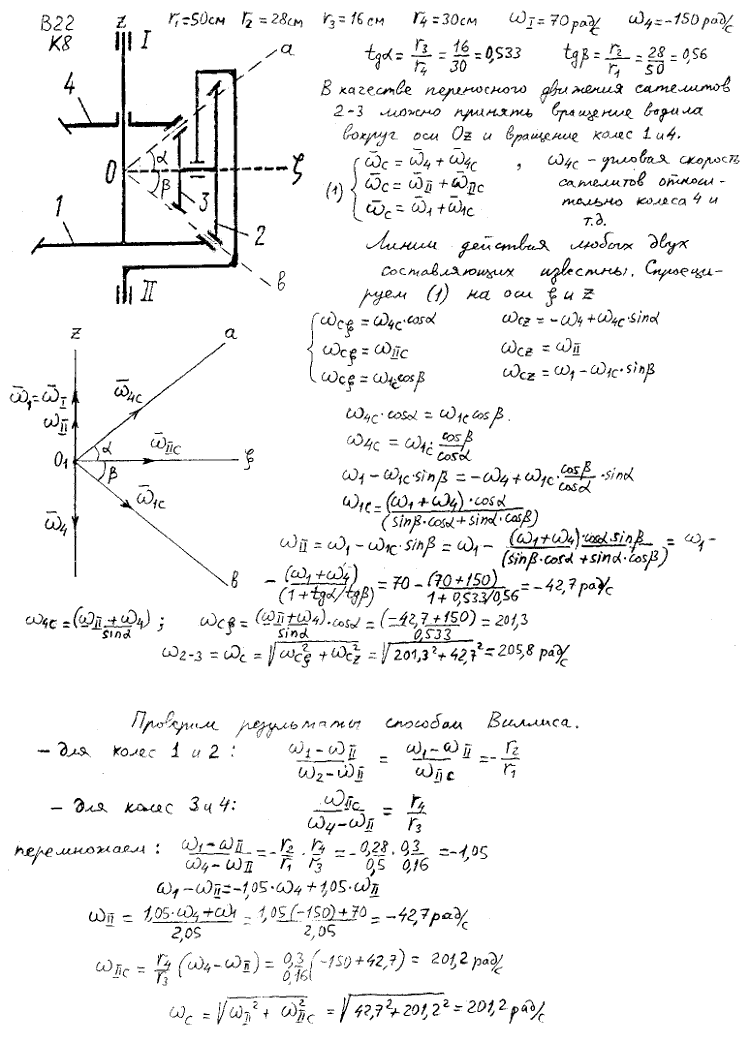 B22 K8
r₁=50см r₂=28см r₃=16см r₄=30см ω_I=70рад/с ω₄=-150рад/с
tgα = r₃/r₄ = 16/30 = 0,533 tgβ = r₂/r₁ = 28/50 = 0,56
В качестве переносного движения сателитов
2-3 можно принять вращение водила
вокруг оси Oz и вращение колес 1 и 4.
(1) { ω̄_C = ω̄₄ + ω̄₄C , ω₄C – угловая скорость
ω̄_C = ω̄_II + ω̄_IIC сателитов относи-
ω̄_C = ω̄₁ + ω̄₁C тельно колеса 4 и
т.д.
Линии действия любых двух
составляющих известны. Спроеци-
руем (1) на оси ξ и z
z I a 4 O α β ξ 3 1 2 II в
{ ω_Cξ = ω₄C·cosα ω_Cz = -ω₄ + ω₄C·sinα
ω_Cξ = ω_IIC ω_Cz = ω_II
ω_Cξ = ω₁C cosβ ω_Cz = ω₁ - ω₁C·sinβ
z a ω̄₄C ω̄₁=ω̄_I ω̄_II O₁ α β ω̄_IIC ξ ω̄₁C ω̄₄ в
ω₄C·cosα = ω₁C cosβ.
ω₄C = ω₁C·cosβ/cosα
ω₁ - ω₁C·sinβ = -ω₄ + ω₁C·cosβ/cosα·sinα
ω₁C = (ω₁+ω₄)·cosα/(sinβ·cosα+sinα·cosβ)
ω_II = ω₁ - ω₁C·sinβ = ω₁ - (ω₁+ω₄)·cosα·sinβ/(sinβ·cosα+sinα·cosβ) = ω₁ -
- (ω₁+ω₄)/(1+tgα/tgβ) = 70 - (70+150)/(1+0,533/0,56) = -42,7 рад/с
ω₄C = (ω_II+ω₄)/sinα ; ω_Cξ = (ω_II+ω₄)/sinα·cosα = (-42,7+150)/0,533 = 201,3
ω₂₋₃ = ω_C = √(ω_Cξ² + ω_Cz²) = √(201,3²+42,7²) = 205,8 рад/с
Проверим результаты способом Виллиса.
– для колес 1 и 2: (ω₁-ω_II)/(ω₂-ω_II) = (ω₁-ω_II)/ω_IIC = -r₂/r₁
– для колес 3 и 4: ω_IIC/(ω₄-ω_II) = r₄/r₃
перемножаем: (ω₁-ω_II)/(ω₄-ω_II) = -r₂/r₁·r₄/r₃ = -0,28/0,5·0,3/0,16 = -1,05
ω₁-ω_II = -1,05·ω₄+1,05·ω_II
ω_II = (1,05·ω₄+ω₁)/2,05 = (1,05(-150)+70)/2,05 = -42,7 рад/с
ω_IIC = r₄/r₃(ω₄-ω_II) = 0,3/0,16(-150+42,7) = 201,2 рад/с
ω_C = √(ω_II² + ω_IIC²) = √(42,7²+201,2²) = 201,2 рад/с